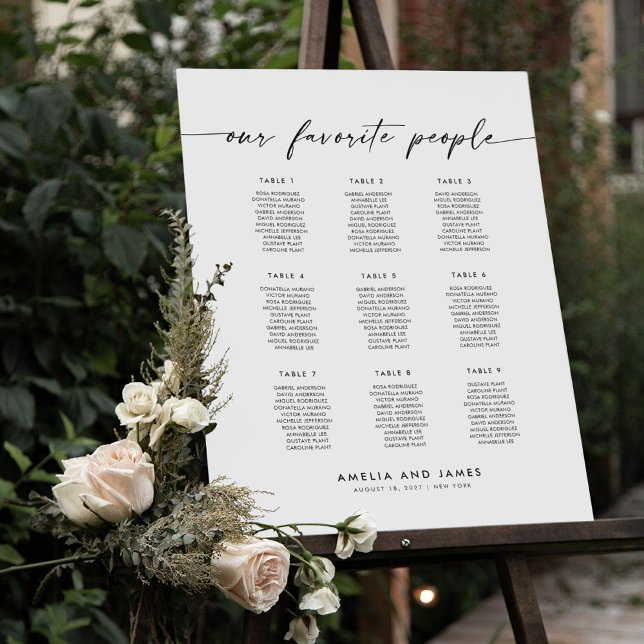 our favorite people
TABLE 1
ROSA RODRIGUEZ
DONATELLA MURANO
VICTOR MURANO
GABRIEL ANDERSON
DAVID ANDERSON
MIGUEL RODRIGUEZ
MICHELLE JEFFERSON
ANNABELLE LEE
GUSTAVE PLANT
CAROLINE PLANT
TABLE 2
GABRIEL ANDERSON
ANNABELLE LEE
GUSTAVE PLANT
CAROLINE PLANT
DAVID ANDERSON
MIGUEL RODRIGUEZ
ROSA RODRIGUEZ
DONATELLA MURANO
VICTOR MURANO
MICHELLE JEFFERSON
TABLE 3
DAVID ANDERSON
MIGUEL RODRIGUEZ
ROSA RODRIGUEZ
GABRIEL ANDERSON
ANNABELLE LEE
GUSTAVE PLANT
CAROLINE PLANT
DONATELLA MURANO
VICTOR MURANO
MICHELLE JEFFERSON
TABLE 4
DONATELLA MURANO
VICTOR MURANO
MICHELLE JEFFERSON
ROSA RODRIGUEZ
GUSTAVE PLANT
CAROLINE PLANT
GABRIEL ANDERSON
DAVID ANDERSON
MIGUEL RODRIGUEZ
ANNABELLE LEE
TABLE 5
GABRIEL ANDERSON
DAVID ANDERSON
MIGUEL RODRIGUEZ
DONATELLA MURANO
VICTOR MURANO
MICHELLE JEFFERSON
ROSA RODRIGUEZ
ANNABELLE LEE
GUSTAVE PLANT
CAROLINE PLANT
TABLE 6
ROSA RODRIGUEZ
DONATELLA MURANO
VICTOR MURANO
MICHELLE JEFFERSON
GABRIEL ANDERSON
DAVID ANDERSON
MIGUEL RODRIGUEZ
ANNABELLE LEE
GUSTAVE PLANT
CAROLINE PLANT
TABLE 7
GABRIEL ANDERSON
DAVID ANDERSON
MIGUEL RODRIGUEZ
DONATELLA MURANO
VICTOR MURANO
MICHELLE JEFFERSON
ROSA RODRIGUEZ
ANNABELLE LEE
GUSTAVE PLANT
CAROLINE PLANT
TABLE 8
ROSA RODRIGUEZ
DONATELLA MURANO
VICTOR MURANO
GABRIEL ANDERSON
DAVID ANDERSON
MIGUEL RODRIGUEZ
MICHELLE JEFFERSON
ANNABELLE LEE
GUSTAVE PLANT
CAROLINE PLANT
TABLE 9
GUSTAVE PLANT
CAROLINE PLANT
ROSA RODRIGUEZ
DONATELLA MURANO
VICTOR MURANO
GABRIEL ANDERSON
DAVID ANDERSON
MIGUEL RODRIGUEZ
MICHELLE JEFFERSON
ANNABELLE LEE
AMELIA AND JAMES
AUGUST 18, 2027 | NEW YORK